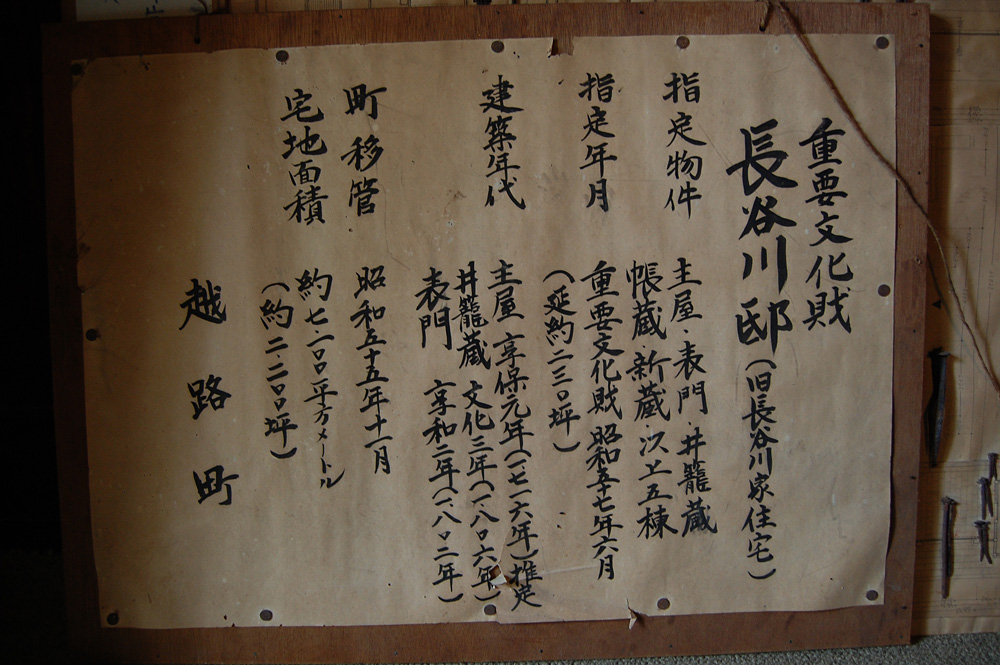 重要文化財
長谷川邸（旧長谷川家住宅）
指定物件 主屋・表門・井籠蔵
帳蔵・新蔵・以上五棟
指定年月 重要文化財 昭和五十七年六月
（延約二三〇坪）
建築年代 主屋 享保元年（一七一六年）推定
井籠蔵 文化三年（一八〇六年）
表門 享和二年（一八〇二年）
町移管 昭和五十五年十一月
宅地面積 約七一〇〇平方メートル
（約二二〇〇坪）
越路町